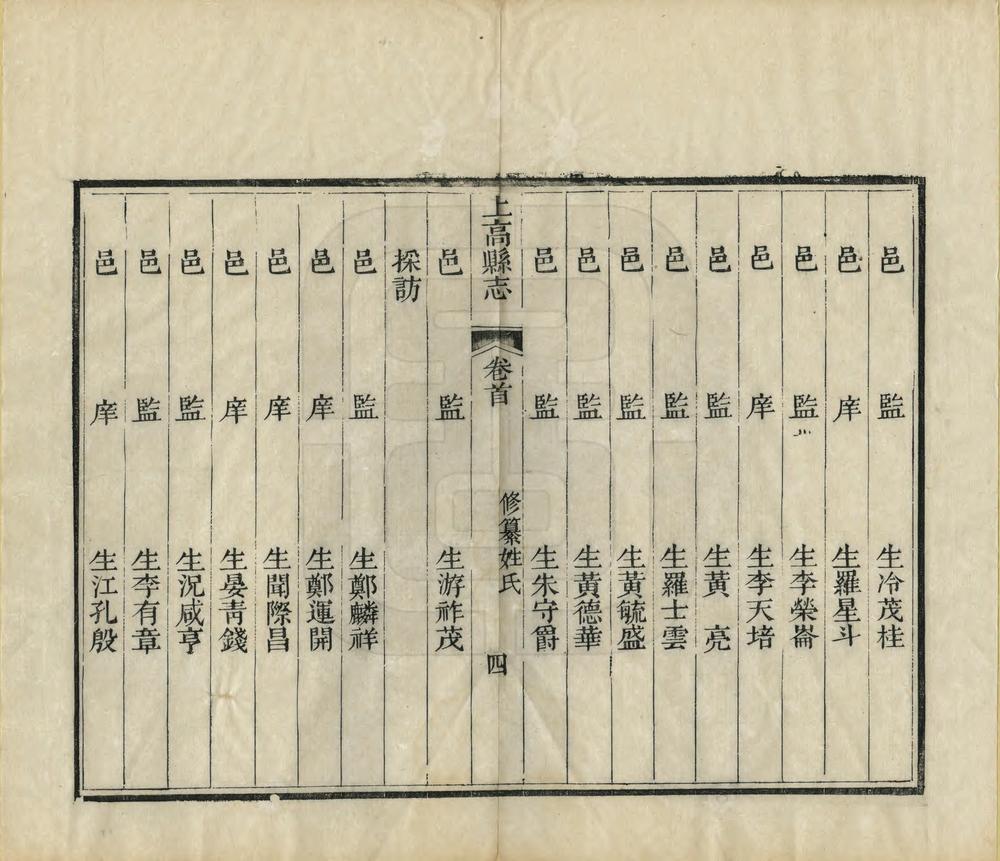 邑監生冷茂桂
邑庠生羅星斗
邑監生李榮崙
邑庠生李天培
邑監生黃亮
邑監生羅士雲
邑監生黃毓盛
邑監生黃德華
邑監生朱守爵
上高縣志 卷首 修纂姓氏 四
邑監生游祚茂
採訪
邑監生鄭麟祥
邑庠生鄭運開
邑庠生聞際昌
邑庠生晏青錢
邑監生況咸亨
邑監生李有章
邑庠生江孔殷